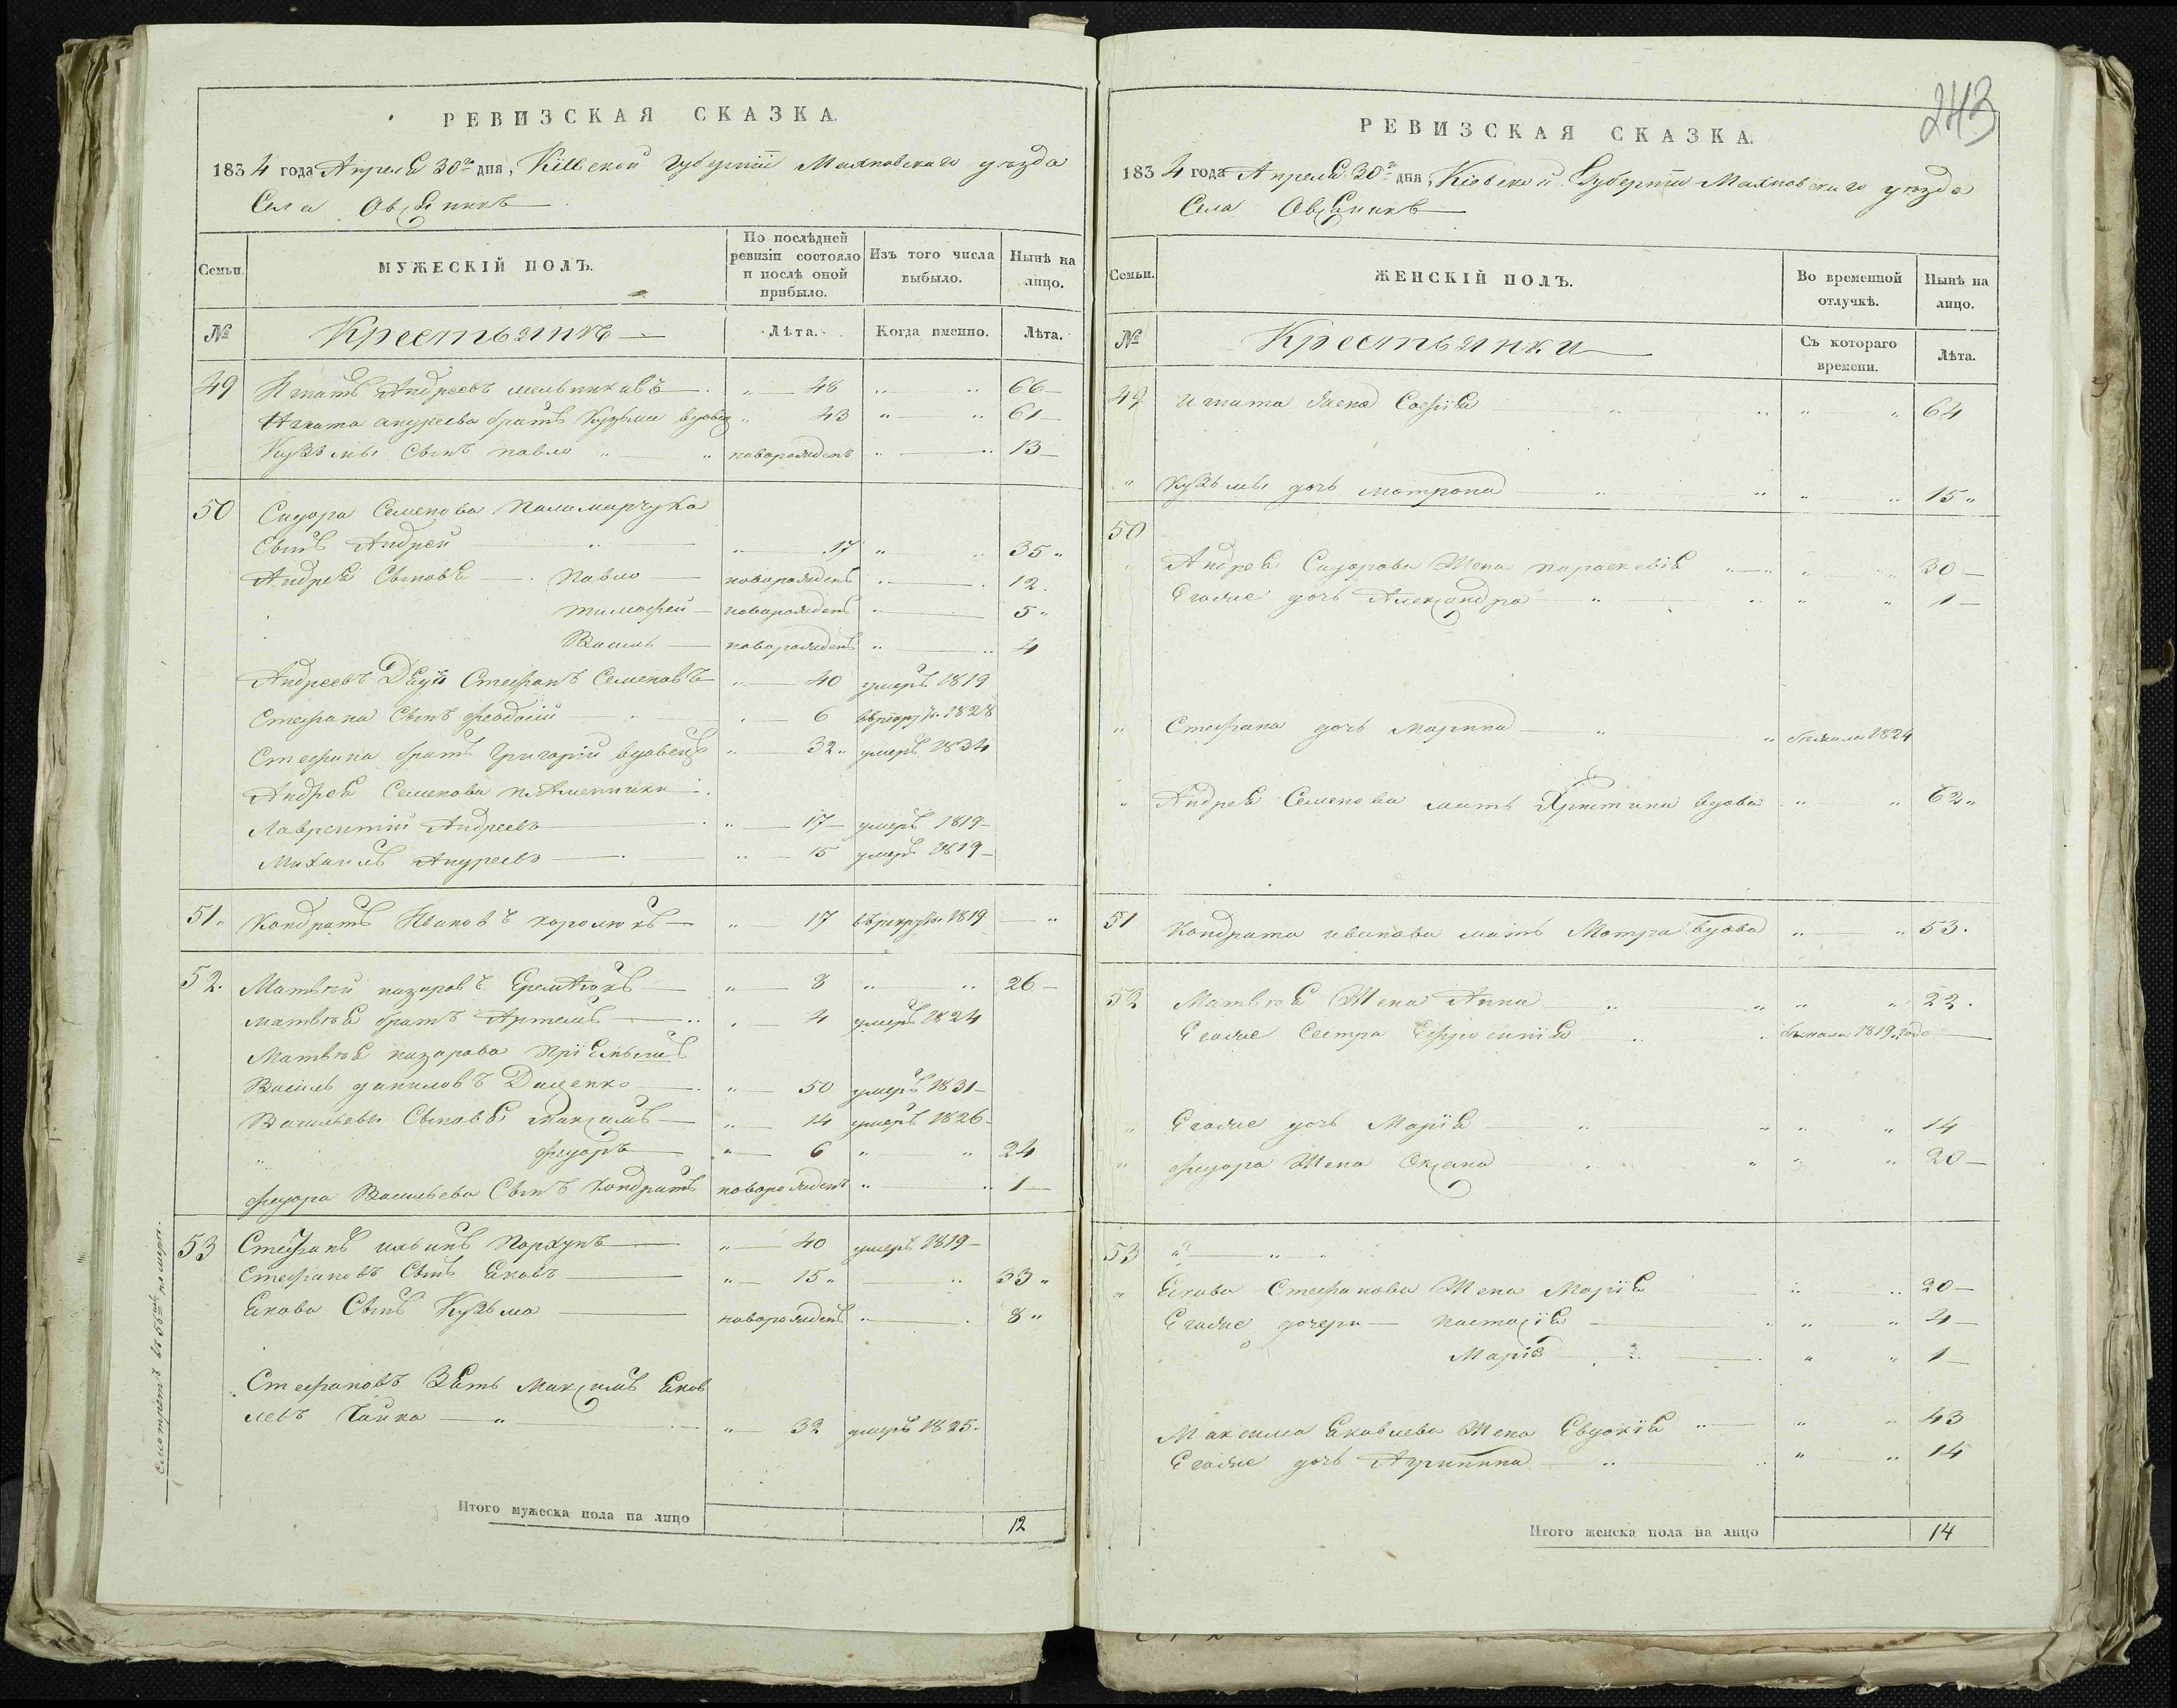 РЕВИЗСКАЯ СКАЗКА.
1834 года Апреля 30го дня, Кіевской губерніи Махновскаго уѣзда
Села Овсяникъ
Семьи. МУЖЕСКІЙ ПОЛЪ. По послѣдней ревизіи состояло и послѣ оной прибыло. Изъ того числа выбыло. Нынѣ на лицо.
№ Крестьянкъ Лѣта. Когда именно. Лѣта.
49 Игнатъ Андреевъ мельниковъ 48 66
Игната андреева братъ Кузьма вдовец 43 61
Кузьмы Сынъ павло новорожденъ 13
50 Сидора Семенова Паламарчука
Сынъ Андрей 17 35
Андрея Сыновя Павло новорожденъ 12
тимофей новорожденъ 5
Василь новорожденъ 4
Андреевъ Дядя Стефанъ Семеновъ 40 умеръ 1819
Стефана Сынъ феодосій 6 въ рекру. 1828
Стефана братъ Григорій вдовецъ 32 умеръ 1834
Андрея Семенова племянники
Лаврентій Андреевъ 17 умеръ 1819
Михаилъ Андреевъ 15 умеръ 1819
51. Кондратъ Ивановъ королюкъ 17 въ рекру. 1819
52. Матвѣй назаровъ Еремѣюкъ 8 26
матвѣя братъ Артемъ 4 умеръ 1824
Матвѣя назарова пріемышъ
Василь даниловъ Даценко 50 умеръ 1831
Васильевы Сыновя максимъ 14 умеръ 1826
федоръ 6 24
федора Васильева Сынъ Кондратъ новорожденъ 1
53 Стефанъ ильинъ Пархунъ 40 умеръ 1819
Стефановъ Сынъ Яковъ 15 33
Якова Сынъ Кузьма новорожденъ 8
Стефановъ Зять максимъ Яков
левъ Чайка 32 умеръ 1825
Итого мужеска пола на лицо 12
Смотреть въ 56мъ номеръ.
243
РЕВИЗСКАЯ СКАЗКА.
1834 года Апреля 30го дня, Кіевской Губерніи Махновскаго уѣзда
Села Овсяникъ
Семьи. ЖЕНСКІЙ ПОЛЪ. Во временной отлучкѣ. Нынѣ на лицо.
№ Крестьянки Съ котораго времени. Лѣта.
49 игната жена Софія 64
Кузьмы дочь матрона 15
50
Андрея Сидорова Жена параскевія 30
Егоже дочь Александра 1
Стефана дочь марина бежала 1824
Андрея Семенова мать Христина вдова 62
51 Кондрата иванова мать Мотра вдова 53.
52 Матвѣя Жена Анна 22.
Егоже Сестра Ефросинія бежала 1819 года
Егоже дочь Марія 14
федора Жена Оксана 20
53
Якова Стефанова Жена Марія 20
Егоже дочери настасія 4
Марія 1
Максима Яковлева Жена Евдокія 43
Егоже дочь Агрипина 14
Итого женска пола на лицо 14